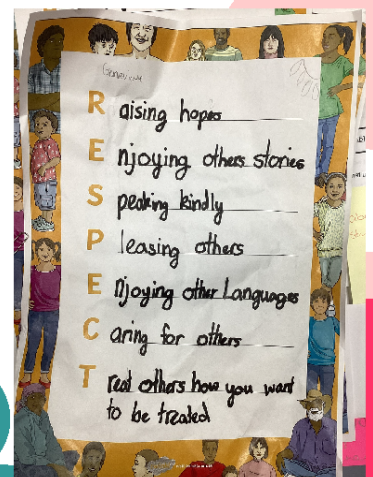 Raising hopes
Enjoying others stories
Speaking kindly
Pleasing others
Enjoying other Languages
Caring for others
Treat others how you want
to be treated